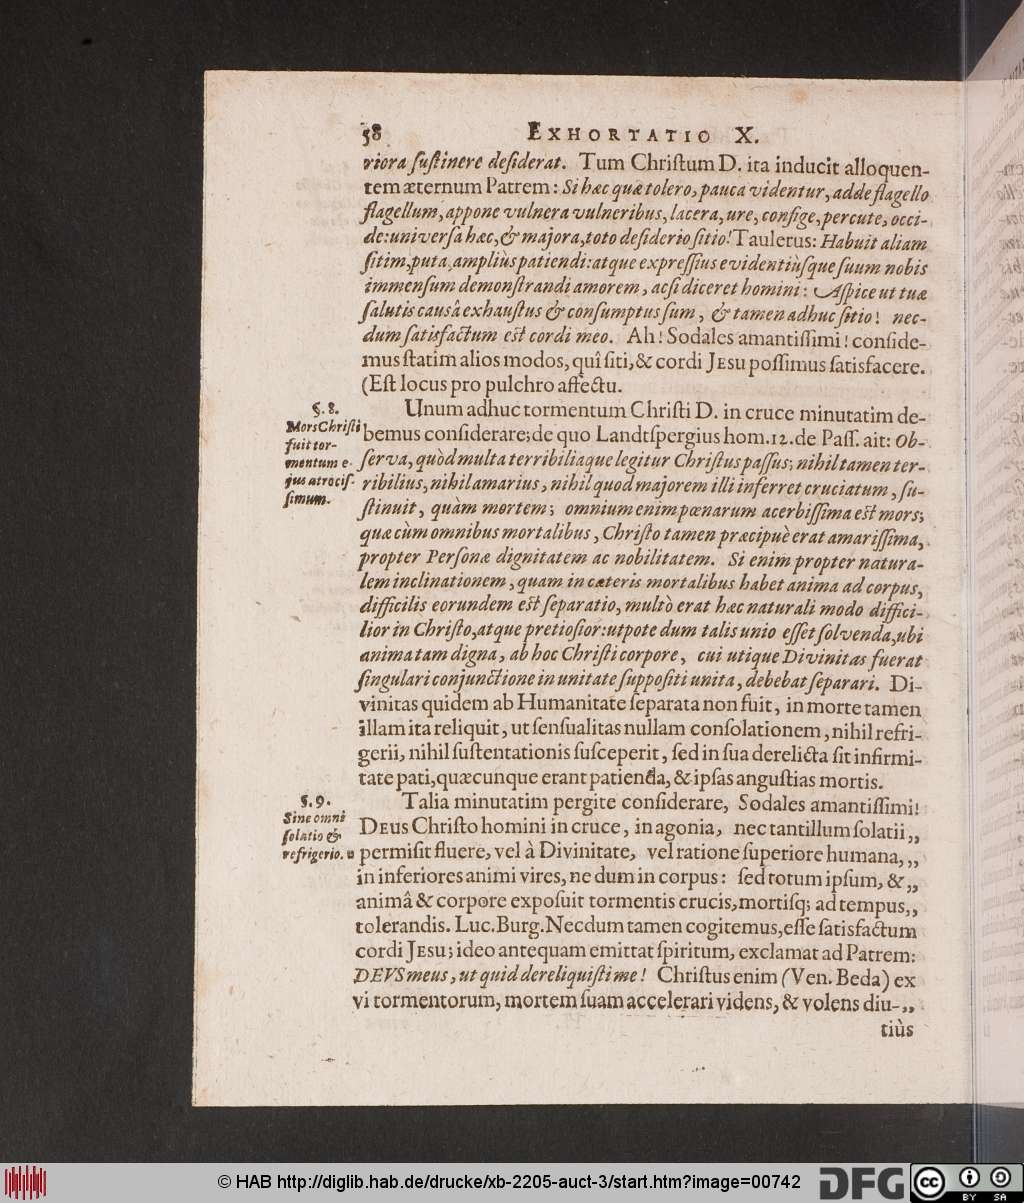 58 EXHORTATIO X.
viora ſuſtinere deſiderat. Tum Chriſtum D. ita inducit alloquen-
tem æternum Patrem: Si hæc quæ tolero, pauca videntur, adde flagello
flagellum, appone vulnera vulneribus, lacera, ure, confige, percute, occi-
de: univerſa hæc, & majora, toto deſiderio ſitio! Taulerus: Habuit aliam
ſitim, puta ampliùs patiendi: atque expreſſius evidentiùſque ſuum nobis
immenſum demonſtrandi amorem, acſi diceret homini: Aſpice ut tuæ
ſalutis causâ exhauſtus & conſumptus ſum, & tamen adhuc ſitio! nec-
dum ſatisfactum est cordi meo. Ah! Sodales amantiſſimi! conſide-
mus ſtatim alios modos, quî ſiti, & cordi JESU poſſimus ſatisfacere.
(Eſt locus pro pulchro affectu.
§. 8.
Mors Chriſti
fuit tor-
mentum e-
jus atrociſ-
ſimum.
Unum adhuc tormentum Chriſti D. in cruce minutatim de-
bemus conſiderare; de quo Landtſpergius hom. 12. de Paſſ. ait: Ob-
ſerva, quòd multa terribiliaque legitur Chriſtus paſſus; nihil tamen ter-
ribilius, nihil amarius, nihil quod majorem illi inferret cruciatum, ſu-
ſtinuit, quàm mortem; omnium enim pœnarum acerbiſſima est mors;
quæ cùm omnibus mortalibus, Chriſto tamen præcipuè erat amariſſima,
propter Perſonæ dignitatem ac nobilitatem. Si enim propter natura-
lem inclinationem, quam in cæteris mortalibus habet anima ad corpus,
difficilis eorundem est ſeparatio, multò erat hæc naturali modo diffici-
lior in Chriſto, atque pretioſior: utpote dum talis unio eſſet ſolvenda, ubi
anima tam digna, ab hoc Chriſti corpore, cui utique Divinitas fuerat
ſingulari conjunctione in unitate ſuppoſiti unita, debebat ſeparari. Di-
vinitas quidem ab Humanitate ſeparata non fuit, in morte tamen
illam ita reliquit, ut ſenſualitas nullam conſolationem, nihil refri-
gerii, nihil ſuſtentationis ſuſceperit, ſed in ſua derelicta ſit infirmi-
tate pati, quæcunque erant patienda, & ipſas anguſtias mortis.
§. 9.
Sine omni
ſolatio &
refrigerio.
Talia minutatim pergite conſiderare, Sodales amantiſſimi!
DEUS Chriſto homini in cruce, in agonia, nec tantillum ſolatii,,
" permiſit fluere, vel à Divinitate, vel ratione ſuperiore humana,,,
in inferiores animi vires, ne dum in corpus: ſed totum ipſum, &,,
animâ & corpore expoſuit tormentis crucis, mortiſq; ad tempus,,,
tolerandis. Luc. Burg. Necdum tamen cogitemus, eſſe ſatisfactum
cordi JESU; ideo antequam emittat ſpiritum, exclamat ad Patrem:
DEVS meus, ut quid dereliquiſti me! Chriſtus enim (Ven. Beda) ex
vi tormentorum, mortem ſuam accelerari videns, & volens diu-,,
tiùs
© HAB http://diglib.hab.de/drucke/xb-2205-auct-3/start.htm?image=00742
DFG
cc BY SA